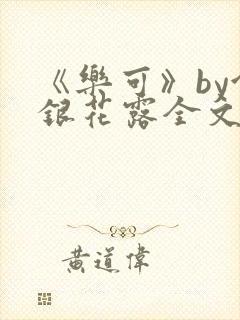 《樂可》by
銀花露全文
黃道偉